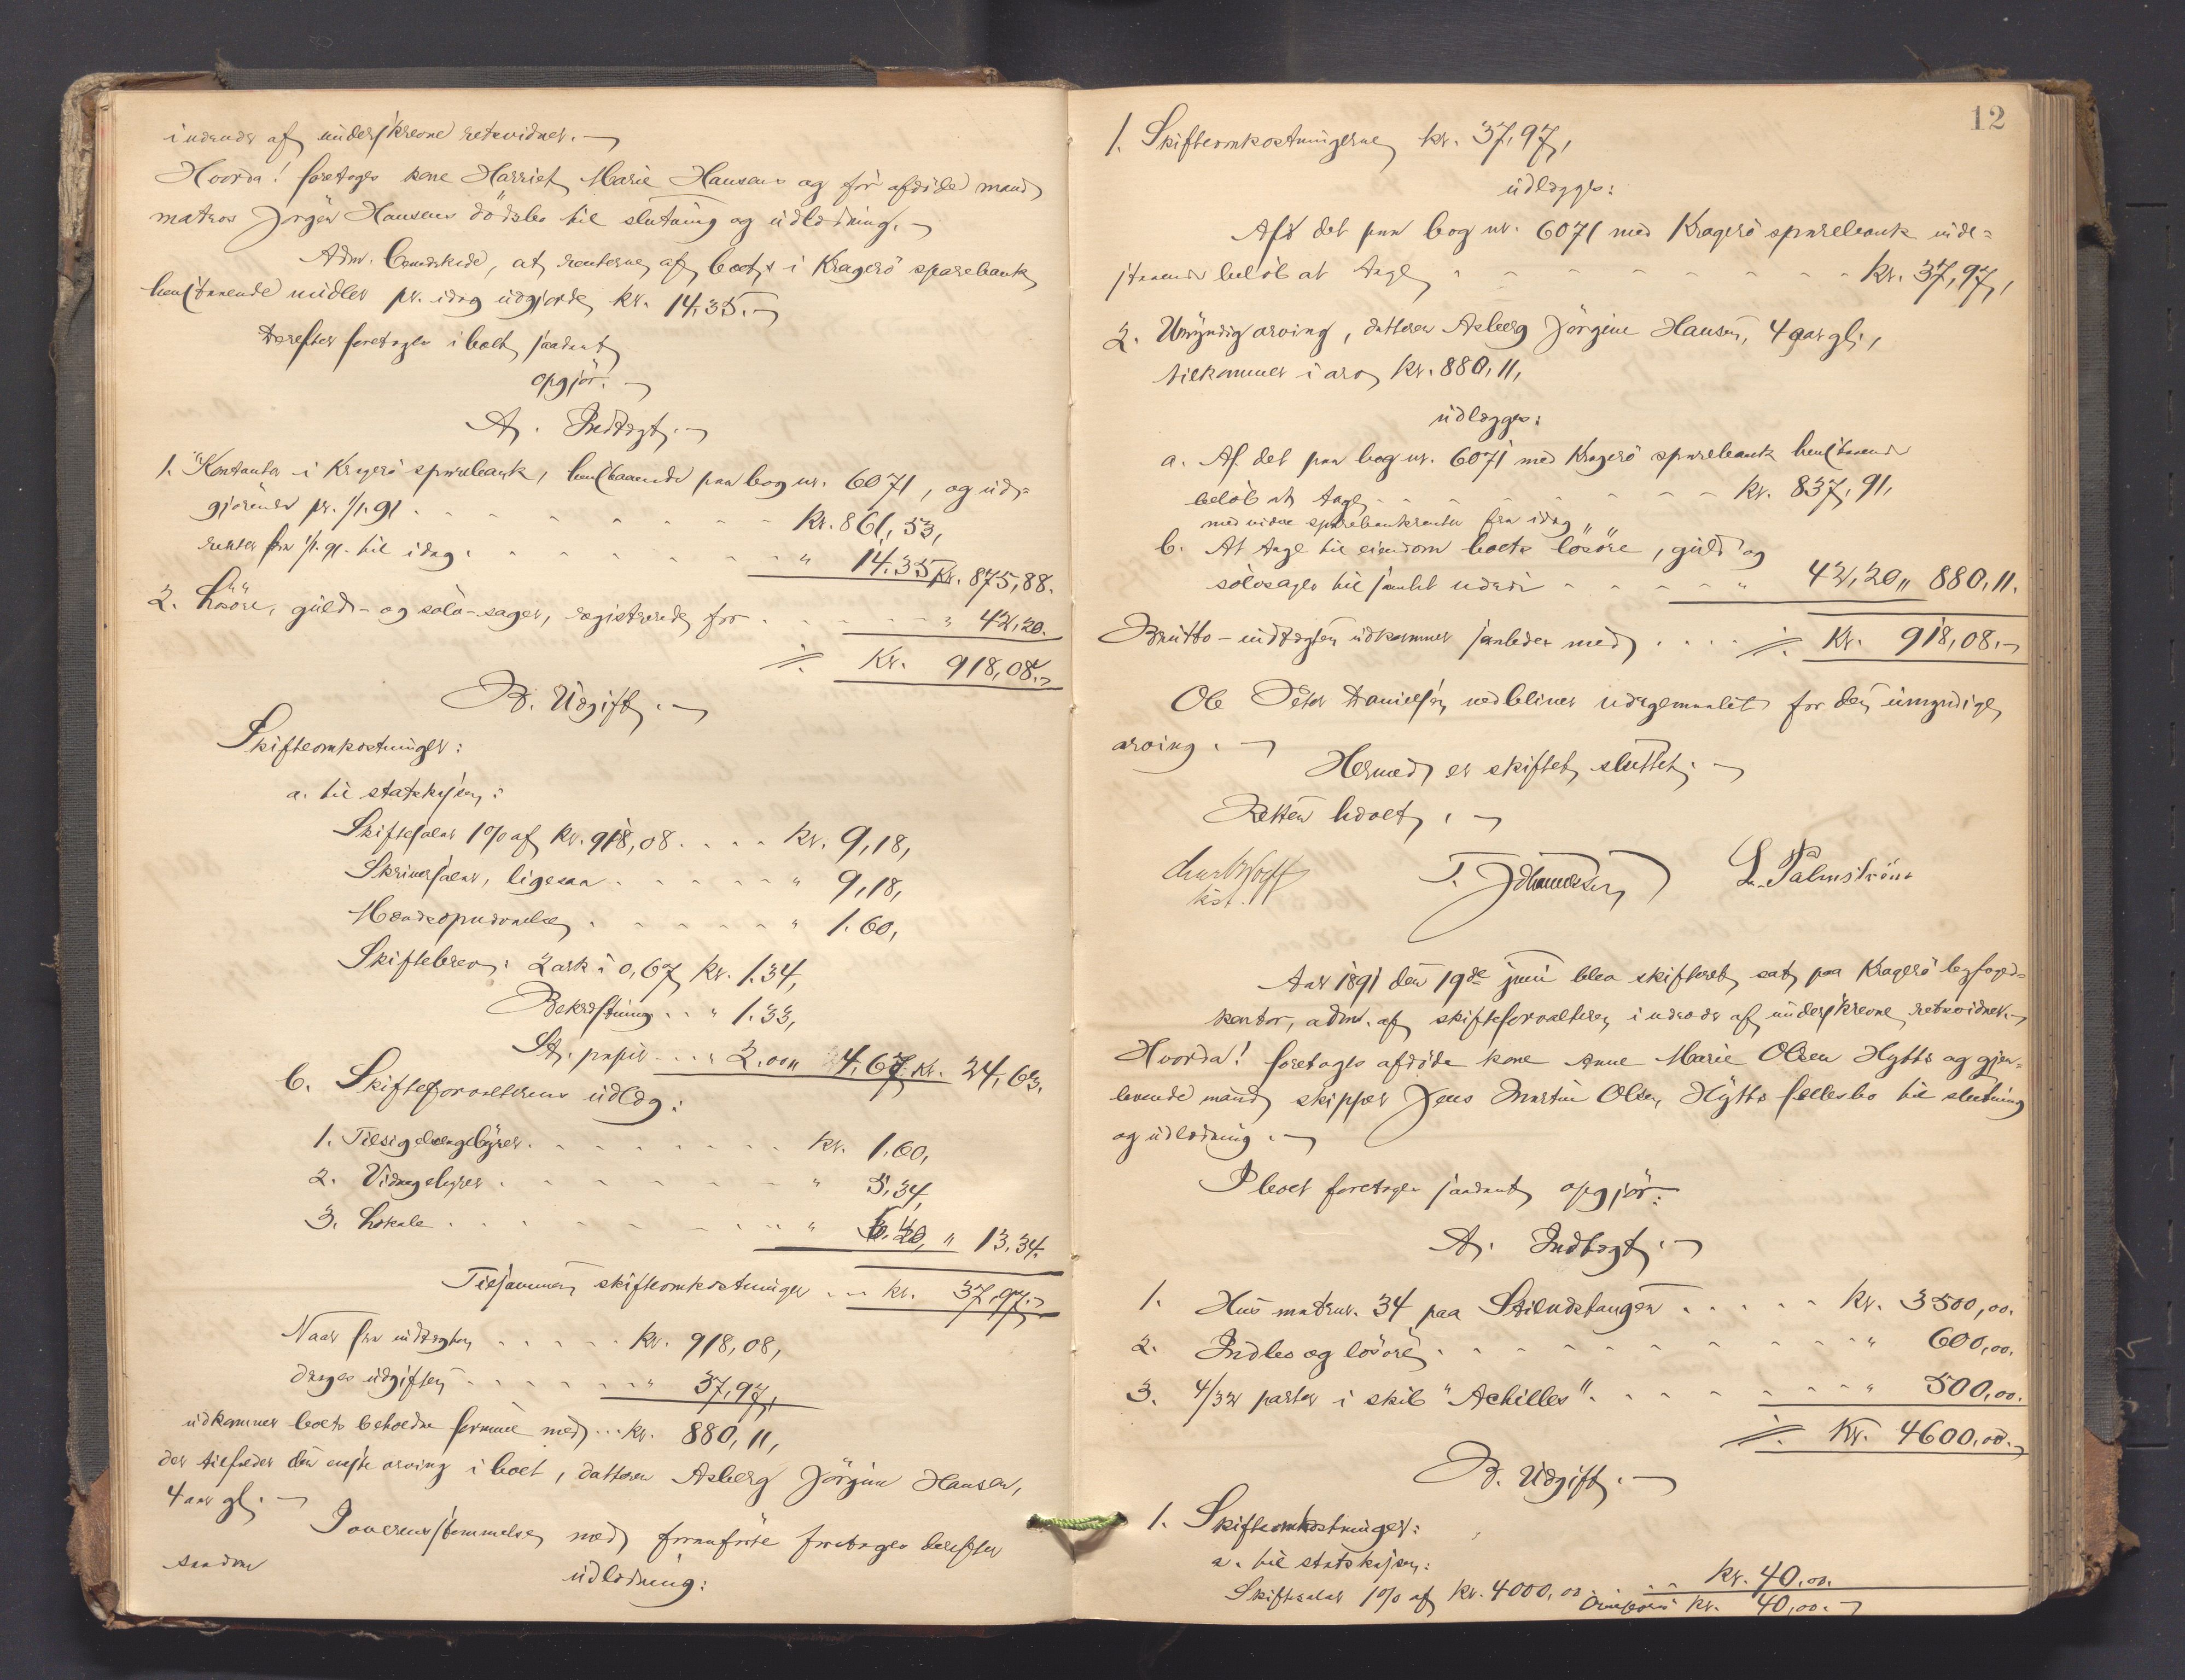 indender af underskrevne retsvidner. —
Hvorda! foretoges kone Harriet Marie Hansens og før afdøde mand
matros Jørgen Hansens dödsbo til slutning og udlodning. —
Adm. bemærkede, at renterne af boets i Kragerö sparebank
henstaaende midler pr. idag udgjorde kr. 14.35. —
Derefter foretoges i boet saadant
opgjör. —
A. Indtægt. —
1. Kontanter i Kragerö sparebank, henstaaende paa bog nr. 6071, og ud-
gjørende pr. 1/1.91 . . . . . kr. 861,53,
renter fra 1/1.91. til idag . . . . . " 14.35 kr. 875,88.
2. Lösöre, guld- og sölv-sager, registreret for . . . . . " 42,20.
÷ kr. 918,08. —
B. Udgift. —
Skifteomkostninger:
a. til statskassen:
Skiftesalær 1% af kr. 918,08 . . . . kr. 9,18,
Skriversalær, ligesaa . . . . . " 9,18,
Mændsopnævnelse . . . . . " 1.60,
Skiftebrev: 2 ark à 0,67 kr. 1.34,
Bekræftning . . " 1.33,
St. papir . . . " 2.00 " 4,67. kr. 24,63.
b. Skifteforvalterens udlæg:
1. Tilsigelsesgebyrer . . . . . kr. 1.60,
2. Vidnegebyrer . . . . . " 5.34,
3. Lokale . . . . . " 6.40, " 13.34.
Tilsammen skifteomkostninger . . . kr. 37,97. —
Naar fra indtægten . . . . . kr. 918,08,
drages udgiften . . . . . " 37,97,
udkommer boets beholdne formue med . . . kr. 880,11,
der tilfalder den eneste arving i boet, datteren Asberg Jörgine Hansen,
4 aar gl. —
I overensstemmelse med foranförte foretoges derefter
saadan
udlodning:
12
1. Skifteomkostningerne kr. 37,97,
udlægges:
Af det paa bog nr. 6071 med Kragerö sparebank inde-
staaende belöb at tage . . . . . kr. 37,97,
2. Umyndig arving, datteren Asberg Jörgine Hansen, 4 aar gl.,
tilkommer i arv kr. 880,11,
udlægges:
a. Af det paa bog nr. 6071 med Kragerö sparebank henstaaende
belöb at tage . . . . . kr. 837,91,
med videre sparebankrenter fra idag " "
b. At tage til eiendom boets lösöre, guld og
sölvsager til samlet værdi . . . . . " 42,20 " 880,11.
Brutto-indtægten udkommer saaledes med . . . . ÷ kr. 918,08. —
Ole Peter Danielsen nedbliver værgemaalet for den umyndige
arving. —
Hermed er skiftet sluttet. —
Retten hævet. —
kst.
T. L. Palmström
Aar 1891 den 19de juni blev skifteret sat paa Kragerö byfoged-
kontor, adm. af skifteforvalteren i nærvær af underskrevne retsvidner. —
Hvorda! foretoges afdöde kone Anne Marie Olsen Hytts og gjen-
levende mand skipper Jens Martin Olsen Hytts fellesbo til slutning
og udlodning. —
I boet foretoges saadant opgjör:
A. Indtægt. —
1. Hus matrnr. 34 paa Stilndstangen . . . . . kr. 3500,00.
2. Indbo og lösöre . . . . . " 600,00.
3. 4/32 parter i skib "Achilles" . . . . . " 500,00.
÷ kr. 4600,00. —
B. Udgift. —
1. Skifteomkostninger:
a. til statskassen:
Skiftesalær 1% af kr. 4000,00 . . . kr. 40.00.
Overföres kr. 40,00. —